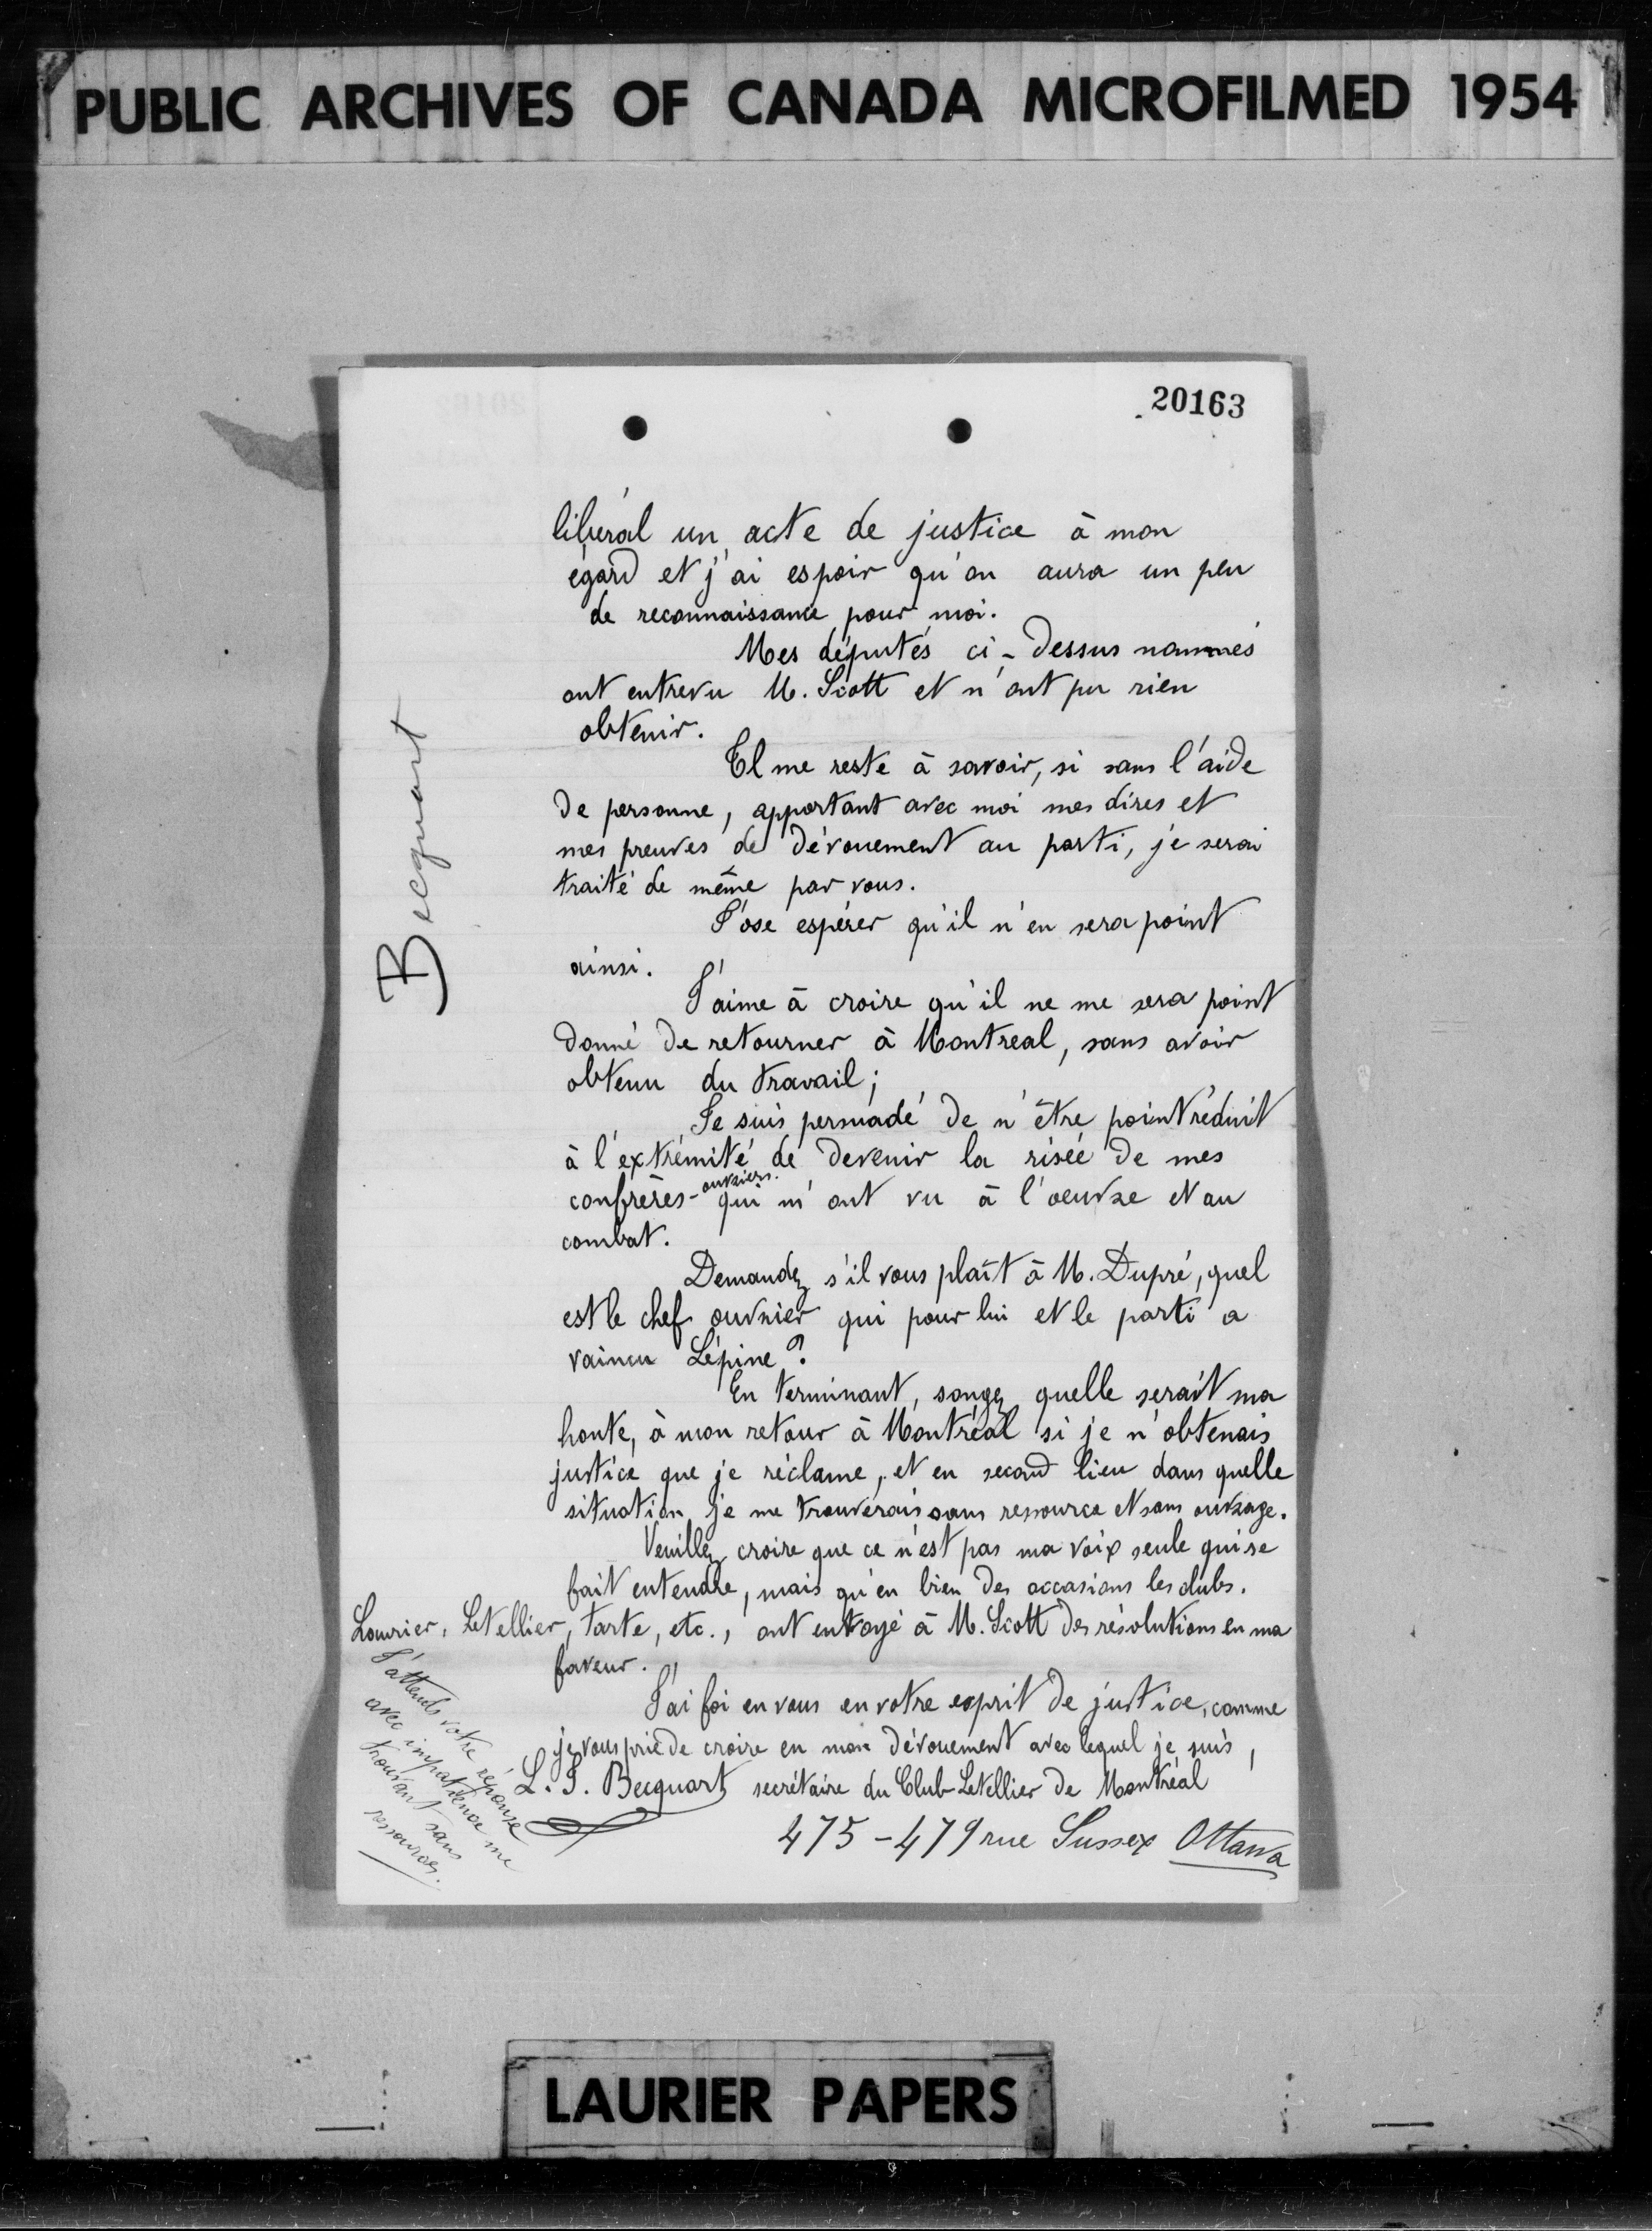 PUBLIC ARCHIVES OF CANADA MICROFILMED 1954
20163
libéral un acte de justice à mon
égard et j'ai espoir qu'on aura un peu
de reconnaissance pour moi.
Mes députés ci-dessus nommés
ont entrevu M. Scott et n'ont pu rien
obtenir.
Il me reste à savoir, si sans l'aide
de personne, apportant avec moi mes dires et
mes preuves de dévouement au parti, je serai
traité de même par vous.
J'ose espérer qu'il n'en sera point
ainsi.
J'aime à croire qu'il ne me sera point
donné de retourner à Montreal, sans avoir
obtenu du travail;
Je suis persuadé de n'être point réduit
à l'extrémité de devenir la risée de mes
confrères-ouvriers qui m'ont vu à l'oeuvre et au
combat.
Demandez s'il vous plaît à M. Dupré, quel
est le chef ouvrier qui pour lui et le parti a
vaincu Lépine?
En terminant, songez quelle serait ma
honte, à mon retour à Montréal si je n'obtenais
justice que je réclame, et en second lieu dans quelle
situation je me trouverais sans ressource et sans ouvrage.
Veuillez croire que ce n'est pas ma voix seule qui se
fait entendre, mais qu'en bien des occasions les clubs.
Laurier, Letellier, Tarte, etc., ont envoyé à M. Scott des résolutions en ma
faveur.
J'ai foi en vous en votre esprit de justice, comme
je vous prie de croire en mon dévouement avec lequel je suis,
L. J. Becquart secrétaire du Club Letellier de Montréal
475-479 rue Sussex Ottawa
J'attends votre réponse
avec impatience me
trouvant sans
ressources.
Becquart
LAURIER PAPERS